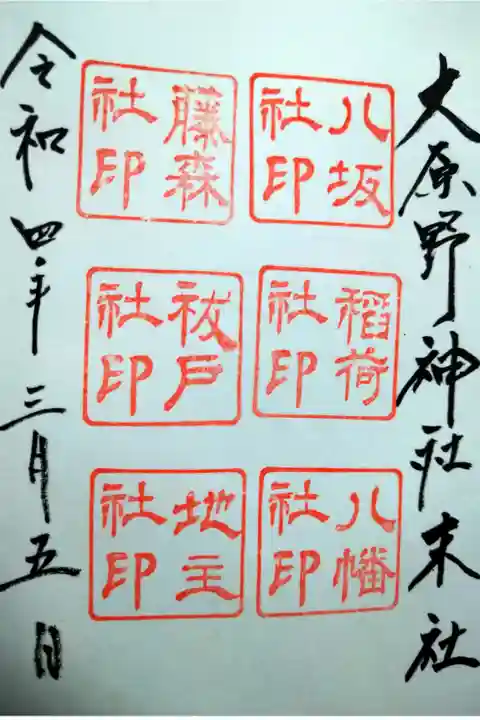 大原野神社末社
八坂
社印
稲荷
社印
八幡
社印
藤森
社印
祓戸
社印
地主
社印
令和四年三月五日